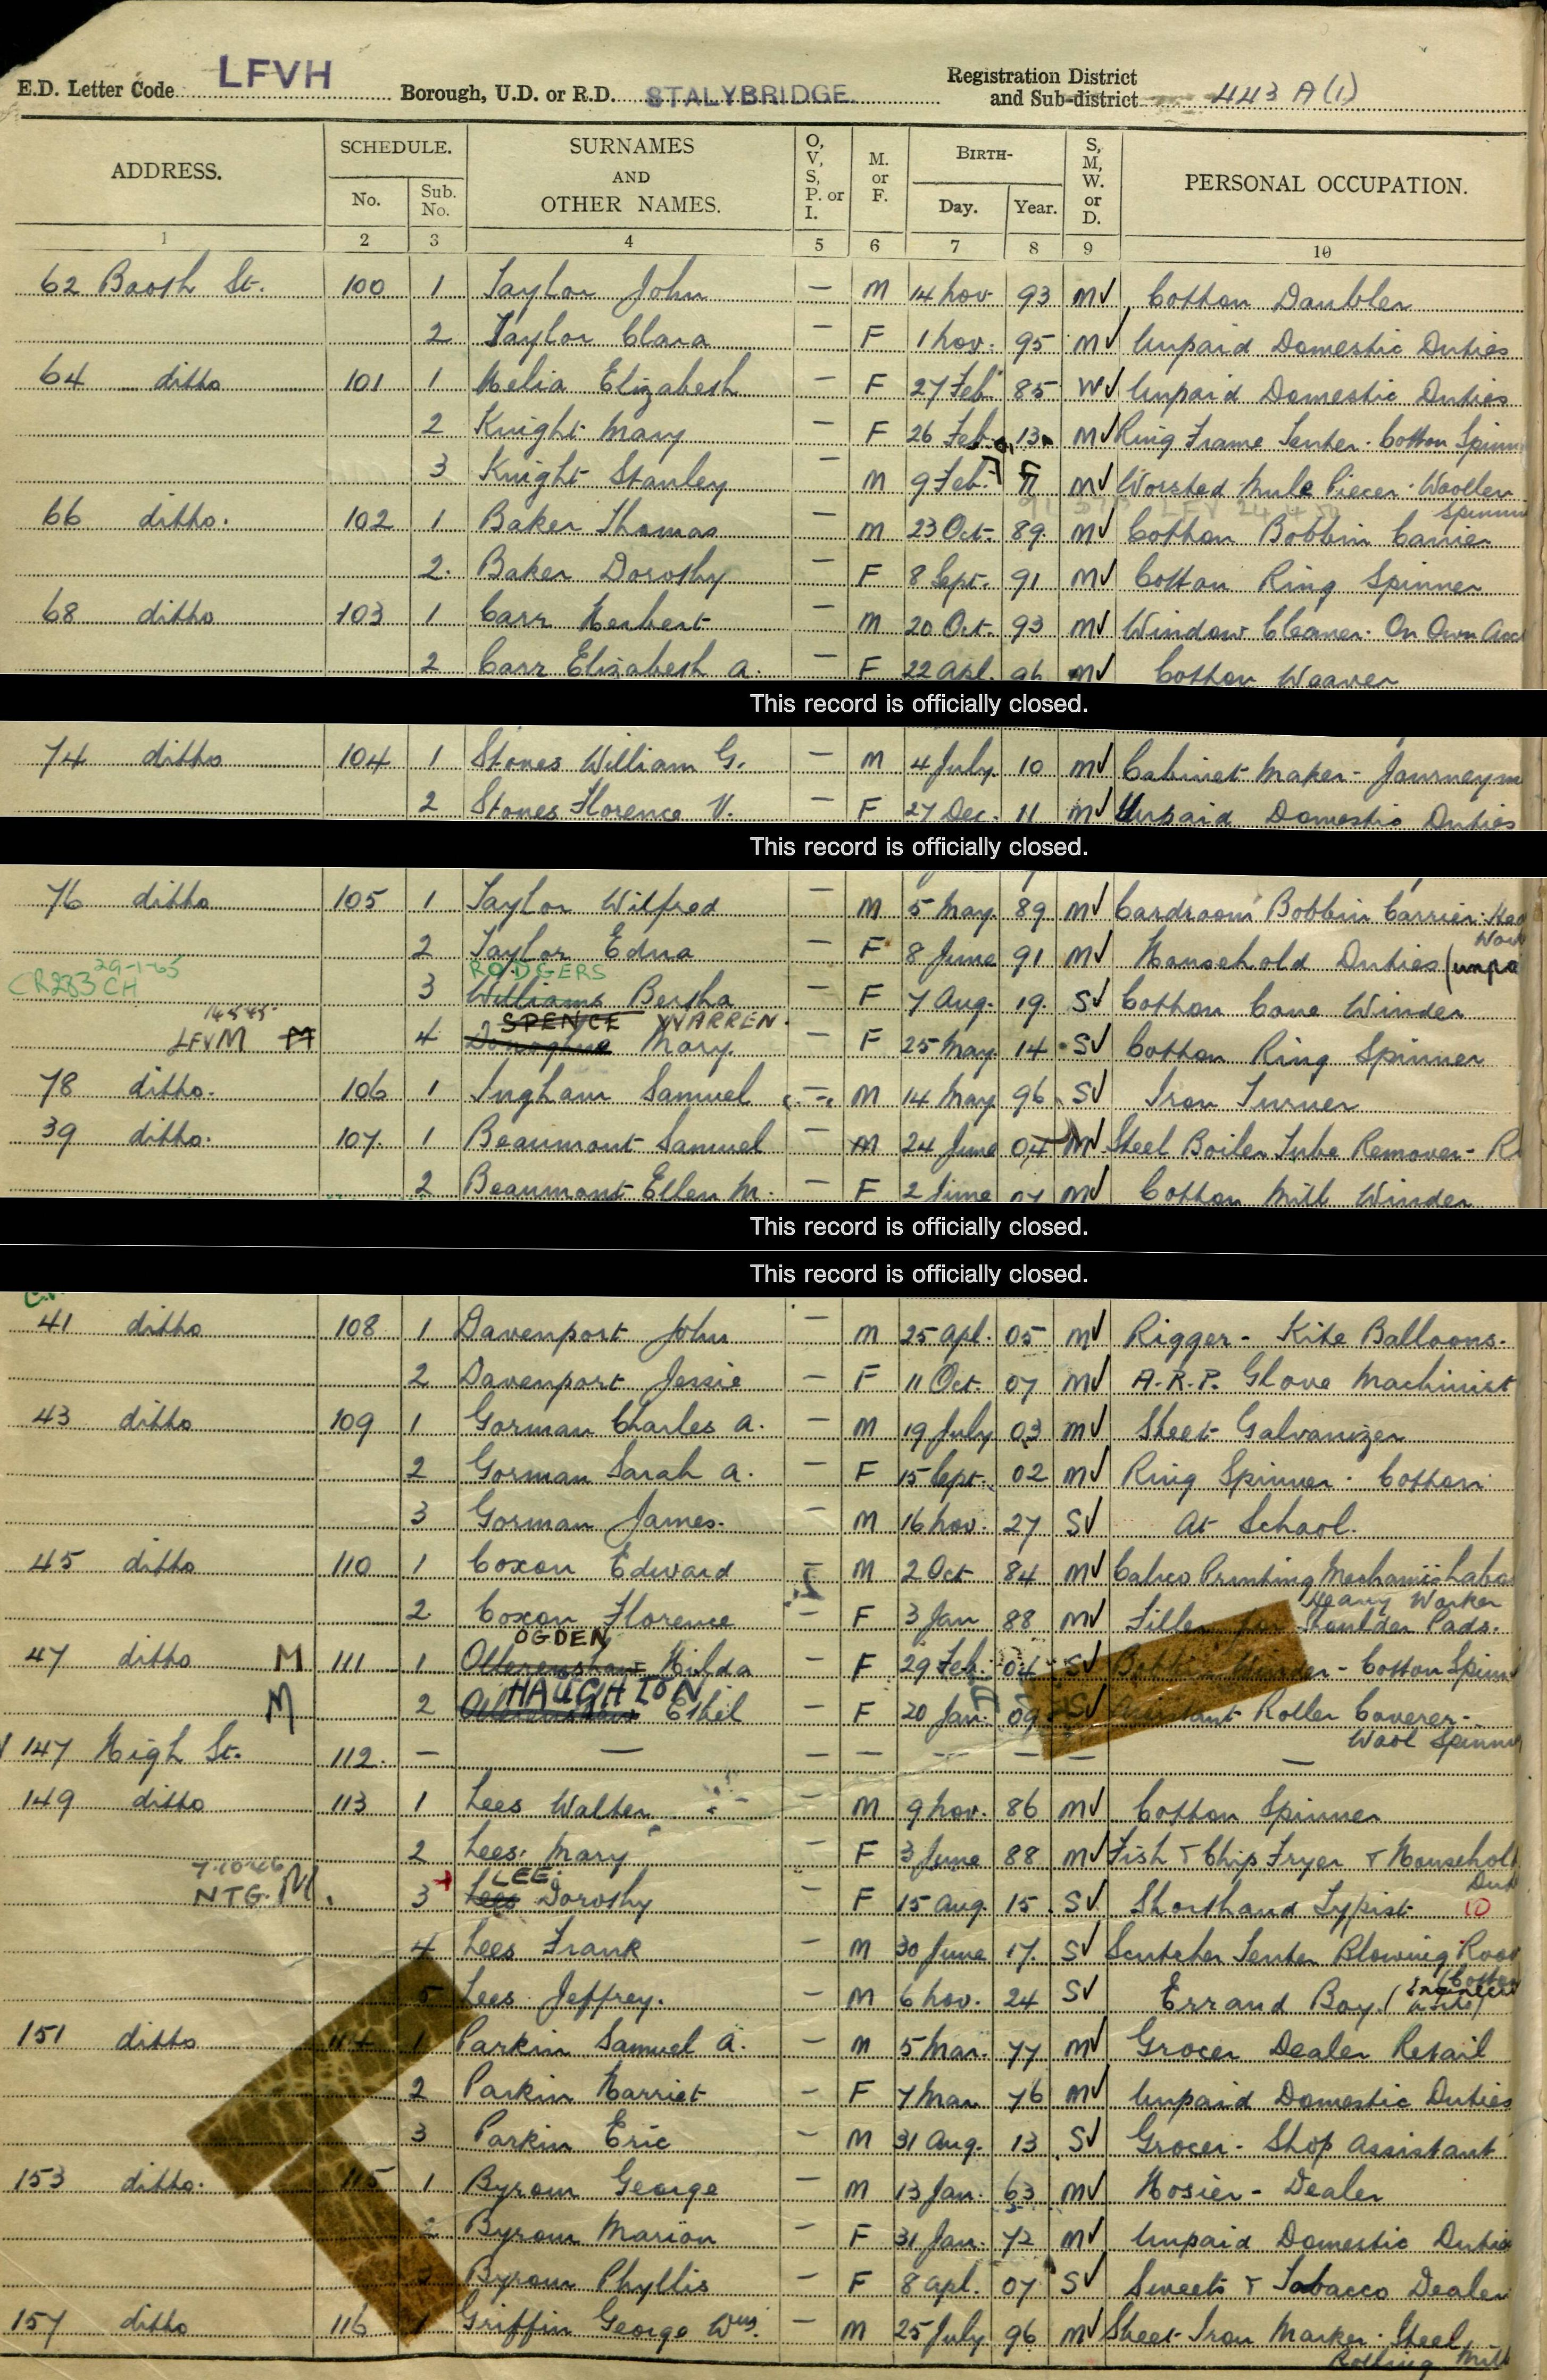 E.D. Letter Code LFVH Borough, U.D. or R.D. STALYBRIDGE Registration District and Sub-district 443 A(1)
ADDRESS. SCHEDULE. No. Sub. No. SURNAMES AND OTHER NAMES. O, V, S, P. or I. M. or F. BIRTH- Day. Year. S, M, W. or D. PERSONAL OCCUPATION.
1 2 3 4 5 6 7 8 9 10
62 Booth St. 100 1 Taylor John — M 14 Nov. 93 M✓ Cotton Doubler
2 Taylor Clara — F 1 Nov. 95 M✓ Unpaid Domestic Duties
64 ditto 101 1 Melia Elizabeth — F 27 Feb. 85 W✓ Unpaid Domestic Duties
2 Knight Mary — F 26 Feb. 13 M✓ Ring Frame Tenter. Cotton Spinn
3 Knight Stanley — M 9 Feb. M✓ Worsted Mule Piecer. Woollen
Spinnin
66 ditto. 102 1 Baker Thomas M 23 Oct. 89. M✓ Cotton Bobbin Carrier
2. Baker Dorothy — F 8 Sept. 91 M✓ Cotton Ring Spinner
68 ditto 103 1 Carr Herbert — M 20 Oct. 93 M✓ Window Cleaner. On Own Acc
2 Carr Elizabeth A. — F 22 Apl. 96 M✓ Cotton Weaver
This record is officially closed.
74 ditto 104 1 Stones William G. — M 4 July 10 M✓ Cabinet Maker - Journeym
2 Stones Florence V. — F 27 Dec. 11 M✓ Unpaid Domestic Duties
This record is officially closed.
76 ditto 105 1 Taylor Wilfred — M 5 May 89 M✓ Cardroom Bobbin Carrier. Hea
Wor
2 Taylor Edna — F 8 June 91 M✓ Household Duties (unpa
29-1-65 RODGERS
CR283 CH 3 Williams Bertha — F 7 Aug. 19. S✓ Cotton Cone Winder
SPENCE WARREN.
LFVM M 4 Donoghue Mary. — F 25 May 14 S✓ Cotton Ring Spinner
78 ditto. 106 1 Ingham Samuel — M 14 May 96 S✓ Iron Turner
39 ditto. 107. 1 Beaumont Samuel — M 24 June 04 M✓ Steel Boiler Tube Remover - R
2 Beaumont Ellen M. — F 2 June 07 M✓ Cotton Mill Winder
This record is officially closed.
This record is officially closed.
41 ditto 108 1 Davenport John — M 25 Apl. 05 M✓ Rigger - Kite Balloons.
2 Davenport Jessie — F 11 Oct. 07 M✓ A.R.P. Glove Machinist
43 ditto 109 1 Gorman Charles A. — M 19 July 03 M✓ Sheet Galvanizer
2 Gorman Sarah A. — F 15 Sept. 02 M✓ Ring Spinner. Cotton
3 Gorman James. — M 16 Nov. 27 S✓ At School.
45 ditto 110 1 Coxon Edward — M 2 Oct 84 M✓ Calico Printing Mechanics Labo
Heavy Worker
2 Coxon Florence — F 3 Jan 88 M✓ Filler for Shoulder Pads.
OGDEN
47 ditto M 111 1 Ollerenshaw Hilda — F 29 Feb. 04 S✓ Bobbin Winder - Cotton Spinn
HAUGHTON
M 2 Ollerenshaw Ethel — F 20 Jan. 09 S✓ Assistant Roller Coverer -
Wool Spinni
147 High St. 112. — — — — — — — —
149 ditto 113 1 Lees Walter — M 9 Nov. 86 M✓ Cotton Spinner
2 Lees. Mary — F 3 June 88 M✓ Fish & Chip Fryer & Househol
Duti
7.10.46 LEE.
NTG. M 3 Lees Dorothy — F 15 Aug. 15 S✓ Shorthand Typist
4 Lees Frank — M 30 June 17. S✓ Scutcher Tenter Blowing Roo
(Cotton
5 Lees Jeffrey. — M 6 Nov. 24 S✓ Errand Boy.
151 ditto 114 1 Parkin Samuel A. — M 5 Mar. 77 M✓ Grocer Dealer Retail
2 Parkin Harriet — F 7 Mar 76 M✓ Unpaid Domestic Duties
3 Parkin Eric — M 31 Aug. 13 S✓ Grocer - Shop Assistant
153 ditto. 115 1 Byrom George — M 13 Jan. 63 M✓ Hosier - Dealer
2 Byrom Marion — F 31 Jan. 72 M✓ Unpaid Domestic Dutie
3 Byrom Phyllis — F 8 Apl. 07 S✓ Sweets & Tobacco Dealer
157 ditto 116 1 Griffin George Wm. — M 25 July 96 M✓ Sheet Iron Marker. Steel
Rolling Mill